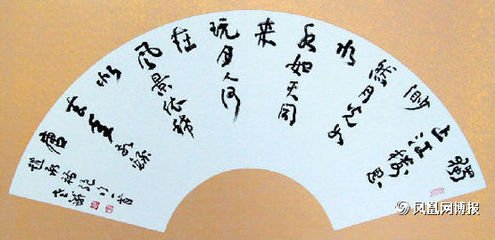 獨
上江樓思
渺
然月光如
水
水如天同
来
玩月人何
在
風景依稀
似
去年
唐
一首
凤凰网博报